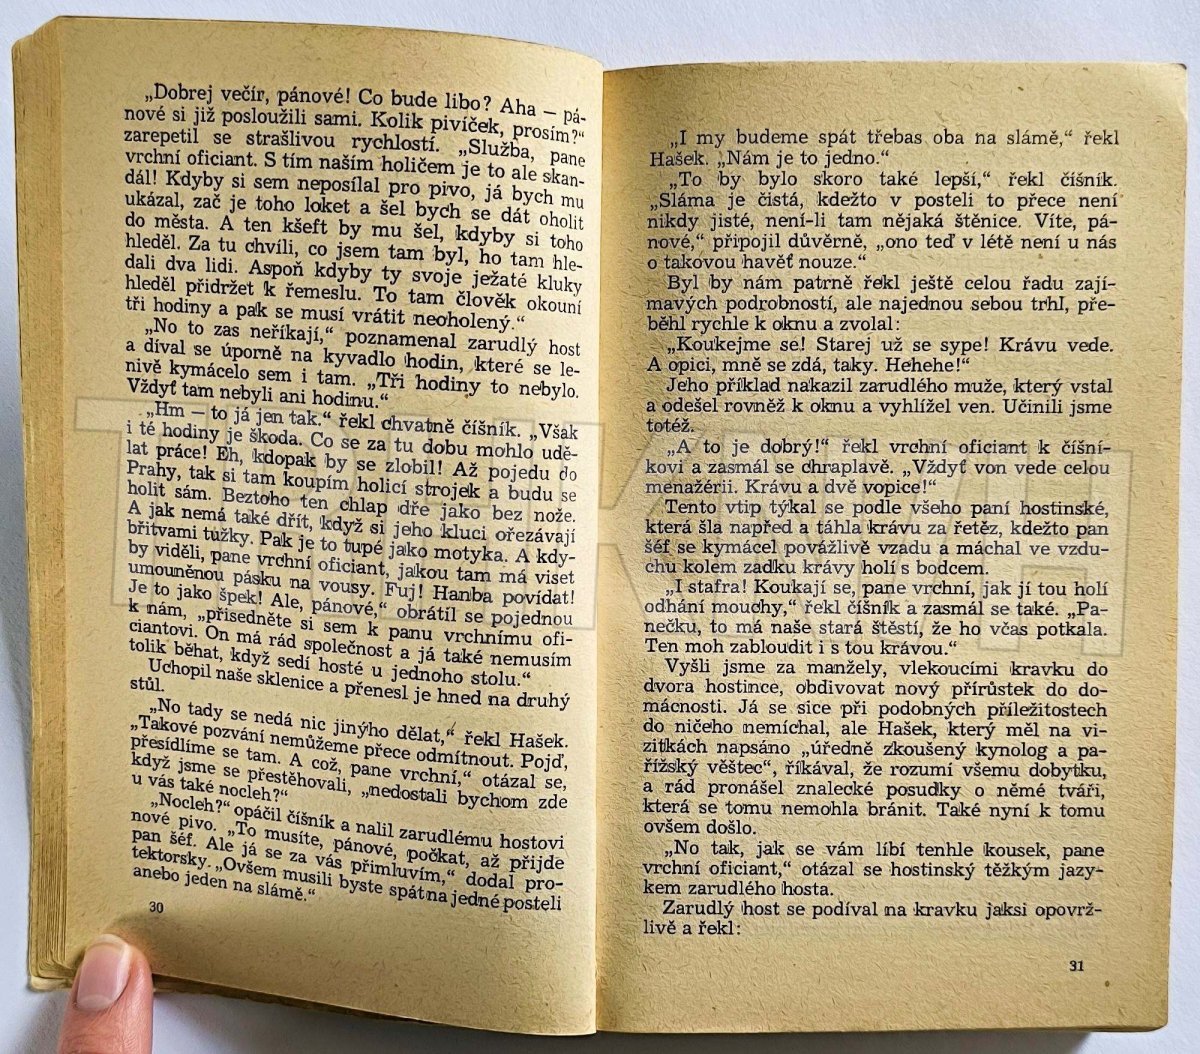 „Dobrej večír, pánové! Co bude libo? Aha — pá-
nové si již posloužili sami. Kolik pivíček, prosím?“
zarepetil se strašlivou rychlostí. „Služba, pane
vrchní oficiant. S tím naším holičem je to ale skan-
dál! Kdyby si sem neposílal pro pivo, já bych mu
ukázal, zač je toho loket a šel bych se dát oholit
do města. A ten kšeft by mu šel, kdyby si toho
hleděl. Za tu chvíli, co jsem tam byl, ho tam hle-
dali dva lidi. Aspoň kdyby ty svoje ježaté kluky
hleděl přidržet k řemeslu. To tam člověk okouní
tři hodiny a pak se musí vrátit neoholený.“
„No to zas neříkají,“ poznamenal zarudlý host
a díval se úporně na kyvadlo hodin, které se le-
nivě kymácelo sem i tam. „Tři hodiny to nebylo.
Vždyť tam nebyli ani hodinu.“
„Hm — to já jen tak.“ řekl chvatně číšník. „Však
i té hodiny je škoda. Co se za tu dobu mohlo udě-
lat práce! Eh, kdopak by se zlobil! Až pojedu do
Prahy, tak si tam koupím holicí strojek a budu se
holit sám. Beztoho ten chlap dře jako bez nože.
A jak nemá také dřít, když si jeho kluci ořezávají
břitvami tužky. Pak je to tupé jako motyka. A kdy-
by viděli, pane vrchní oficiant, jakou tam má viset
umouněnou pásku na vousy. Fuj! Hanba povídat!
Je to jako špek! Ale, pánové,“ obrátil se pojednou
k nám, „přisedněte si sem k panu vrchnímu ofi-
ciantovi. On má rád společnost a já také nemusím
tolik běhat, když sedí hosté u jednoho stolu.“
Uchopil naše sklenice a přenesl je hned na druhý
stůl.
„No tady se nedá nic jinýho dělat,“ řekl Hašek.
„Takové pozvání nemůžeme přece odmítnout. Pojď,
přesídlíme se tam. A což, pane vrchní,“ otázal se,
když jsme se přestěhovali, „nedostali bychom zde
u vás také nocleh?“
„Nocleh?“ opáčil číšník a nalil zarudlému hostovi
nové pivo. „To musíte, pánové, počkat, až přijde
pan šéf. Ale já se za vás přimluvím,“ dodal pro-
tektorsky. „Ovšem musili byste spát na jedné posteli
anebo jeden na slámě.“
30
„I my budeme spát třebas oba na slámě,“ řekl
Hašek. „Nám je to jedno.“
„To by bylo skoro také lepší,“ řekl číšník.
„Sláma je čistá, kdežto v posteli to přece není
nikdy jisté, není-li tam nějaká štěnice. Víte, pá-
nové,“ připojil důvěrně, „ono teď v létě není u nás
o takovou havěť nouze.“
Byl by nám patrně řekl ještě celou řadu zají-
mavých podrobností, ale najednou sebou trhl, pře-
běhl rychle k oknu a zvolal:
„Koukejme se! Starej už se sype! Krávu vede.
A opici, mně se zdá, taky. Hehehe!“
Jeho příklad nakazil zarudlého muže, který vstal
a odešel rovněž k oknu a vyhlížel ven. Učinili jsme
totéž.
„A to je dobrý!“ řekl vrchní oficiant k číšní-
kovi a zasmál se chraplavě. „Vždyť von vede celou
menažérii. Krávu a dvě vopice!“
Tento vtip týkal se podle všeho paní hostinské,
která šla napřed a táhla krávu za řetěz, kdežto pan
šéf se kymácel povážlivě vzadu a máchal ve vzdu-
chu kolem zadku krávy holí s bodcem.
„I stafra! Koukají se, pane vrchní, jak jí tou holí
odhání mouchy,“ řekl číšník a zasmál se také. „Pa-
nečku, to má naše stará štěstí, že ho včas potkala.
Ten moh zabloudit i s tou krávou.“
Vyšli jsme za manžely, vlekoucími kravku do
dvora hostince, obdivovat nový přírůstek do do-
mácnosti. Já se sice při podobných příležitostech
do ničeho nemíchal, ale Hašek, který měl na vi-
zitkách napsáno „úředně zkoušený kynolog a pa-
řížský věštec“, říkával, že rozumí všemu dobytku,
a rád pronášel znalecké posudky o němé tváři,
která se tomu nemohla bránit. Také nyní k tomu
ovšem došlo.
„No tak, jak se vám líbí tenhle kousek, pane
vrchní oficiant,“ otázal se hostinský těžkým jazy-
kem zarudlého hosta.
Zarudlý host se podíval na kravku jaksi opovrž-
livě a řekl:
31